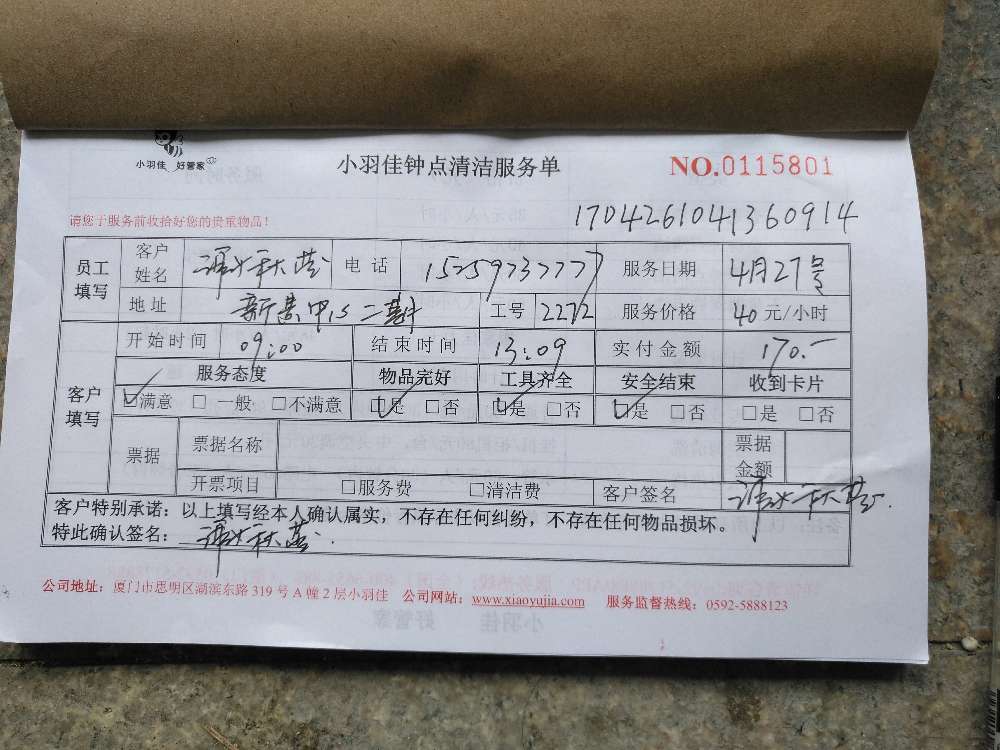 小羽佳 好管家
小羽佳钟点清洁服务单
NO.0115801
请您于服务前收拾好您的贵重物品!
1704261041360914
员工填写 客户姓名 电话 15259737777 服务日期 4月27号
地址 二期 工号 2272 服务价格 40元/小时
客户填写 开始时间 09:00 结束时间 13:09 实付金额 170.-
服务态度 物品完好 工具齐全 安全结束 收到卡片
☑满意 □一般 □不满意 ☑是 □否 ☑是 □否 ☑是 □否 □是 □否
票据 票据名称 票据金额
开票项目 □服务费 □清洁费 客户签名
客户特别承诺:以上填写经本人确认属实,不存在任何纠纷,不存在任何物品损坏。
特此确认签名:
公司地址:厦门市思明区湖滨东路 319 号 A 幢 2 层小羽佳 公司网站:www.xiaoyujia.com 服务监督热线:0592-5888123